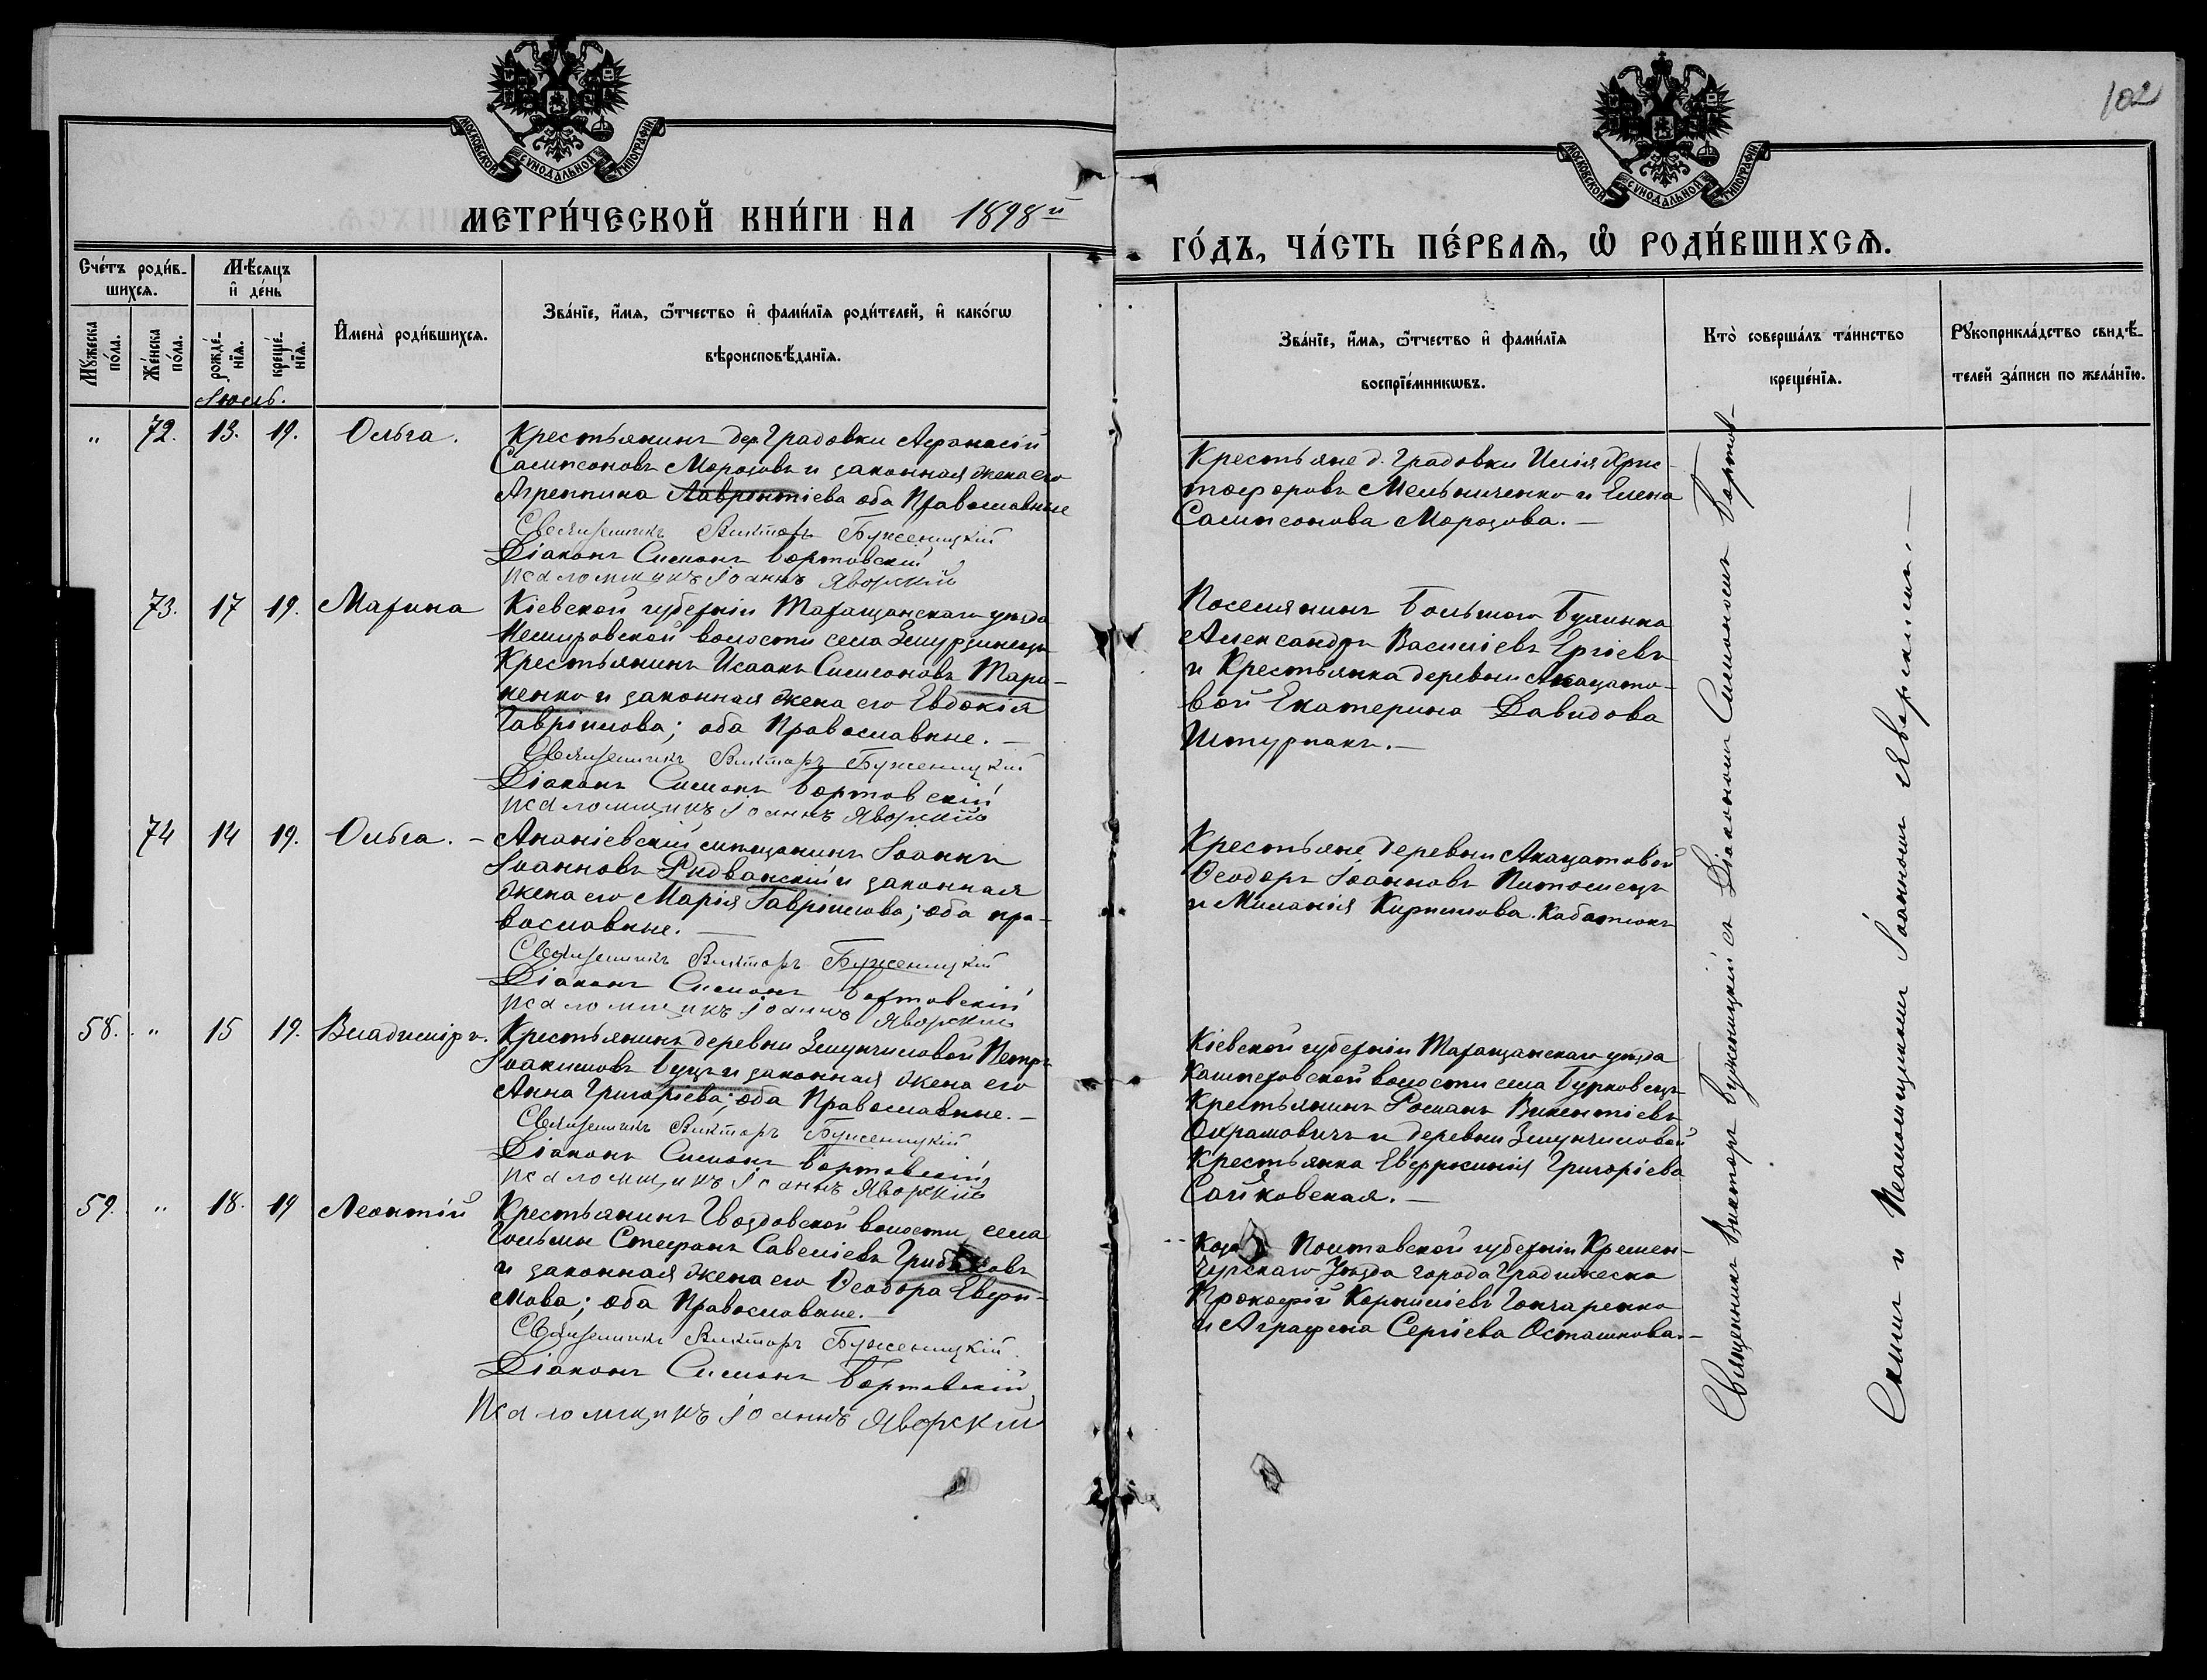 102
МОСКОВСКОЙ СѴНОДАЛЬНОЙ ТИПОГРАФІИ
МОСКОВСКОЙ СѴНОДАЛЬНОЙ ТИПОГРАФІИ
МЕТРИ́ЧЕСКОЙ КНИ́ГИ НА 1898й
ГО́ДЪ, ЧА́СТЬ ПЕ́РВАѦ, Ѡ҆ РОДИ́ВШИХСѦ.
Сче́тъ роди́в-
шихсѧ.
Мꙋ́жеска по́ла.
Же́нска по́ла.
Мѣ́сѧцъ
и҆ де́нь
рожде́-
нїѧ.
креще́-
нїѧ.
Іюль.
И҆мена̀ роди́вшихсѧ.
Зва́нїе, и҆́мѧ, ѻ҆́тчество и҆ фами́лїѧ роди́телей, и҆ како́гѡ
вѣроисповѣ́данїѧ.
Зва́нїе, и҆́мѧ, ѻ҆́тчество и҆ фами́лїѧ
воспрїе́мникѡвъ.
Кто̀ соверша́лъ та́инство
креще́нїѧ.
Рꙋкоприкла́дство свидѣ́-
телей за́писи по жела́нїю.
" 72. 13. 19. Ольга.
Крестьянинъ дер. Градовки Аѳанасій
Сампсоновъ Морозовъ и законная жена его
Агреппина Лаврентіева оба Православные
Священникъ Викторъ Буженицкій
Діаконъ Симонъ Бортовскій
псаломщикъ Іоаннъ Яворскій
Крестьяне д. Градовки Илія Хрис-
тофоровъ Мельниченко и Елена
Сампсонова Морозова. —
73. 17 19. Марина
Кіевской губерніи Таращанскаго уѣзда
волости села
Крестьянинъ Исаакъ Симеоновъ Тара-
ненко и законная жена его Евдокія
Гавріилова; оба Православные. —
Священникъ Викторъ Буженицкій
Діаконъ Симонъ Бортовскій
псаломщикъ Іоаннъ Яворскій
Поселянинъ Большого Буялыка
Александръ Василіевъ Ергіевъ
и Крестьянка деревни Акацато-
вой Екатерина Давидова
Штурпакъ. —
74 14 19. Ольга. —
Ананіевскій мѣщанинъ Іоаннъ
Іоанновъ Ридванскій и законная
жена его Марія Гавріилова; оба пра-
вославные. —
Священникъ Викторъ Буженицкій
Діаконъ Симонъ Бортовскій
псаломщикъ Іоаннъ Яворскій
Крестьяне деревни Акацатовой
Ѳеодоръ Іоанновъ Питомецъ
и Миланія Кирилова Кабатюкъ
58. " 15 19. Владиміръ.
Крестьянинъ деревни Змунчиловой Петръ
Іоакимовъ Буцъ и законная жена его
Анна Григоріева; оба Православные. —
Священникъ Викторъ Буженицкій
Діаконъ Симонъ Бортовскій
псаломщикъ Іоаннъ Яворскій
Кіевской губерніи Таращанскаго уѣзда
волости села Бурковецъ
Крестьянинъ Романъ Викентіевъ
Охрамовичъ и деревни Змунчиловой
Крестьянка Евфросинія Григоріева
Сайковская. —
59. " 18. 19 Леонтій
Крестьянинъ Гвоздовской волости села
Гольмы Стефанъ Савеліевъ
и законная жена его Ѳеодора Евфи-
мова; оба Православные. —
Священникъ Викторъ Буженицкій
Діаконъ Симонъ Бортовскій
Псаломщикъ Іоаннъ Яворскій
Полтавской губерніи Кремен-
чугскаго Уѣзда города Градижеска
Прокофій Корниліевъ Гончаренко
и Аграфена Сергіева Осташкова. —
Священникъ Викторъ Буженицкій съ Діакономъ Симономъ Бортов-
скимъ и Псаломщикомъ Іоанномъ Яворскимъ. —